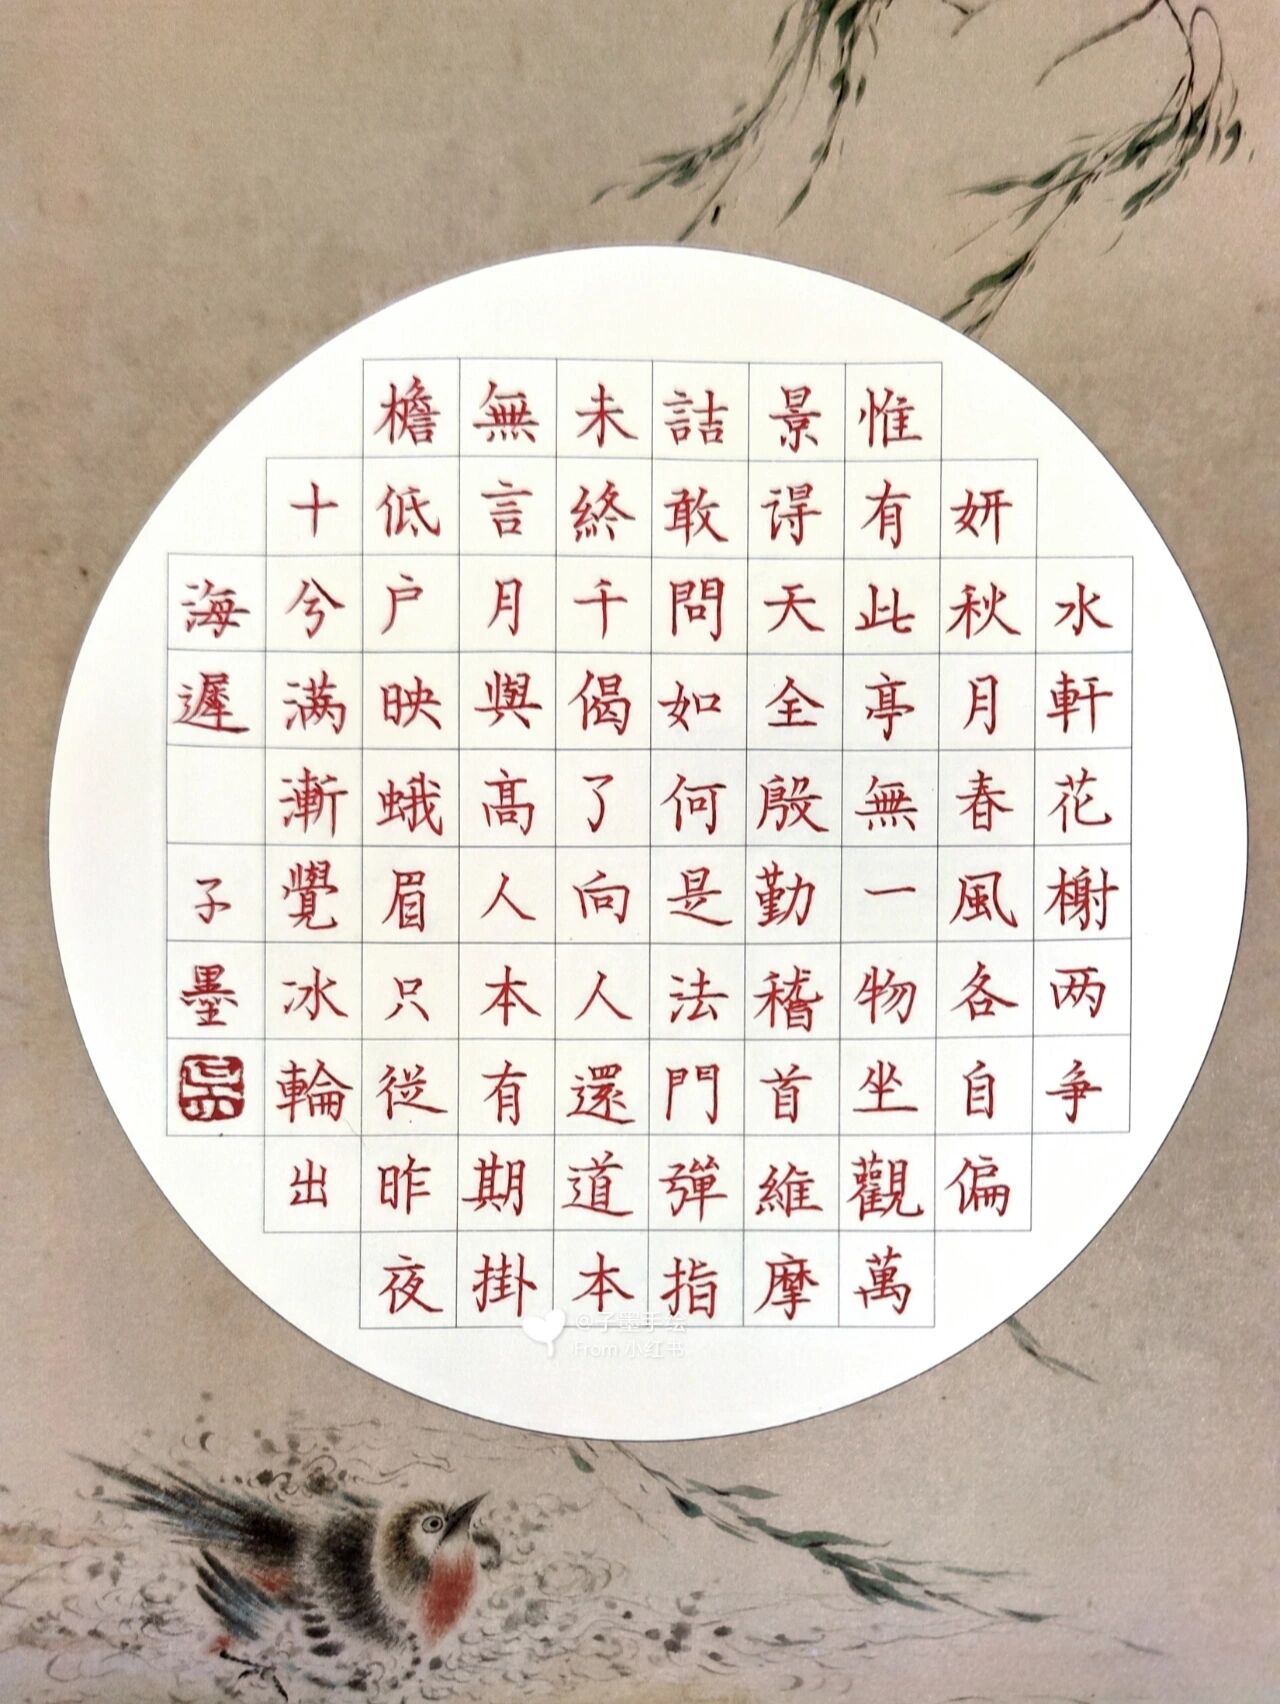 水軒花榭两争
妍秋月春風各自偏
惟有此亭無一物坐觀萬
景得天全殷勤稽首維摩
詰敢問如何是法門彈指
未終千偈了向人還道本
無言月與高人本有期掛
檐低户映蛾眉只從昨夜
十兮满漸覺冰輪出
海遲 子墨
@子墨手绘
From 小红书